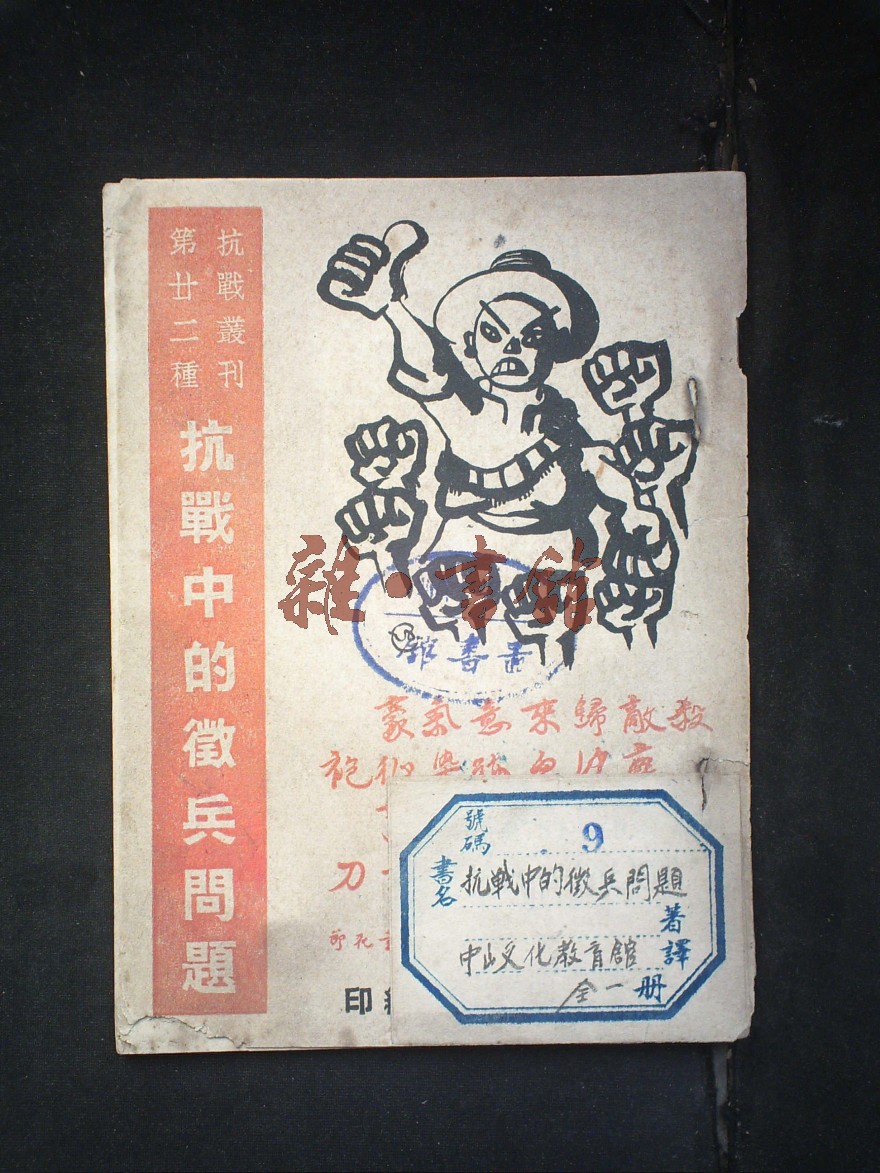 抗戰叢刊
第廿二種
抗戰中的徵兵問題
雜·書館
書館
殺敵歸來意氣豪
袍
刀
印
號碼 9
書名 抗戰中的徵兵問題
著譯 中山文化教育館
全一册